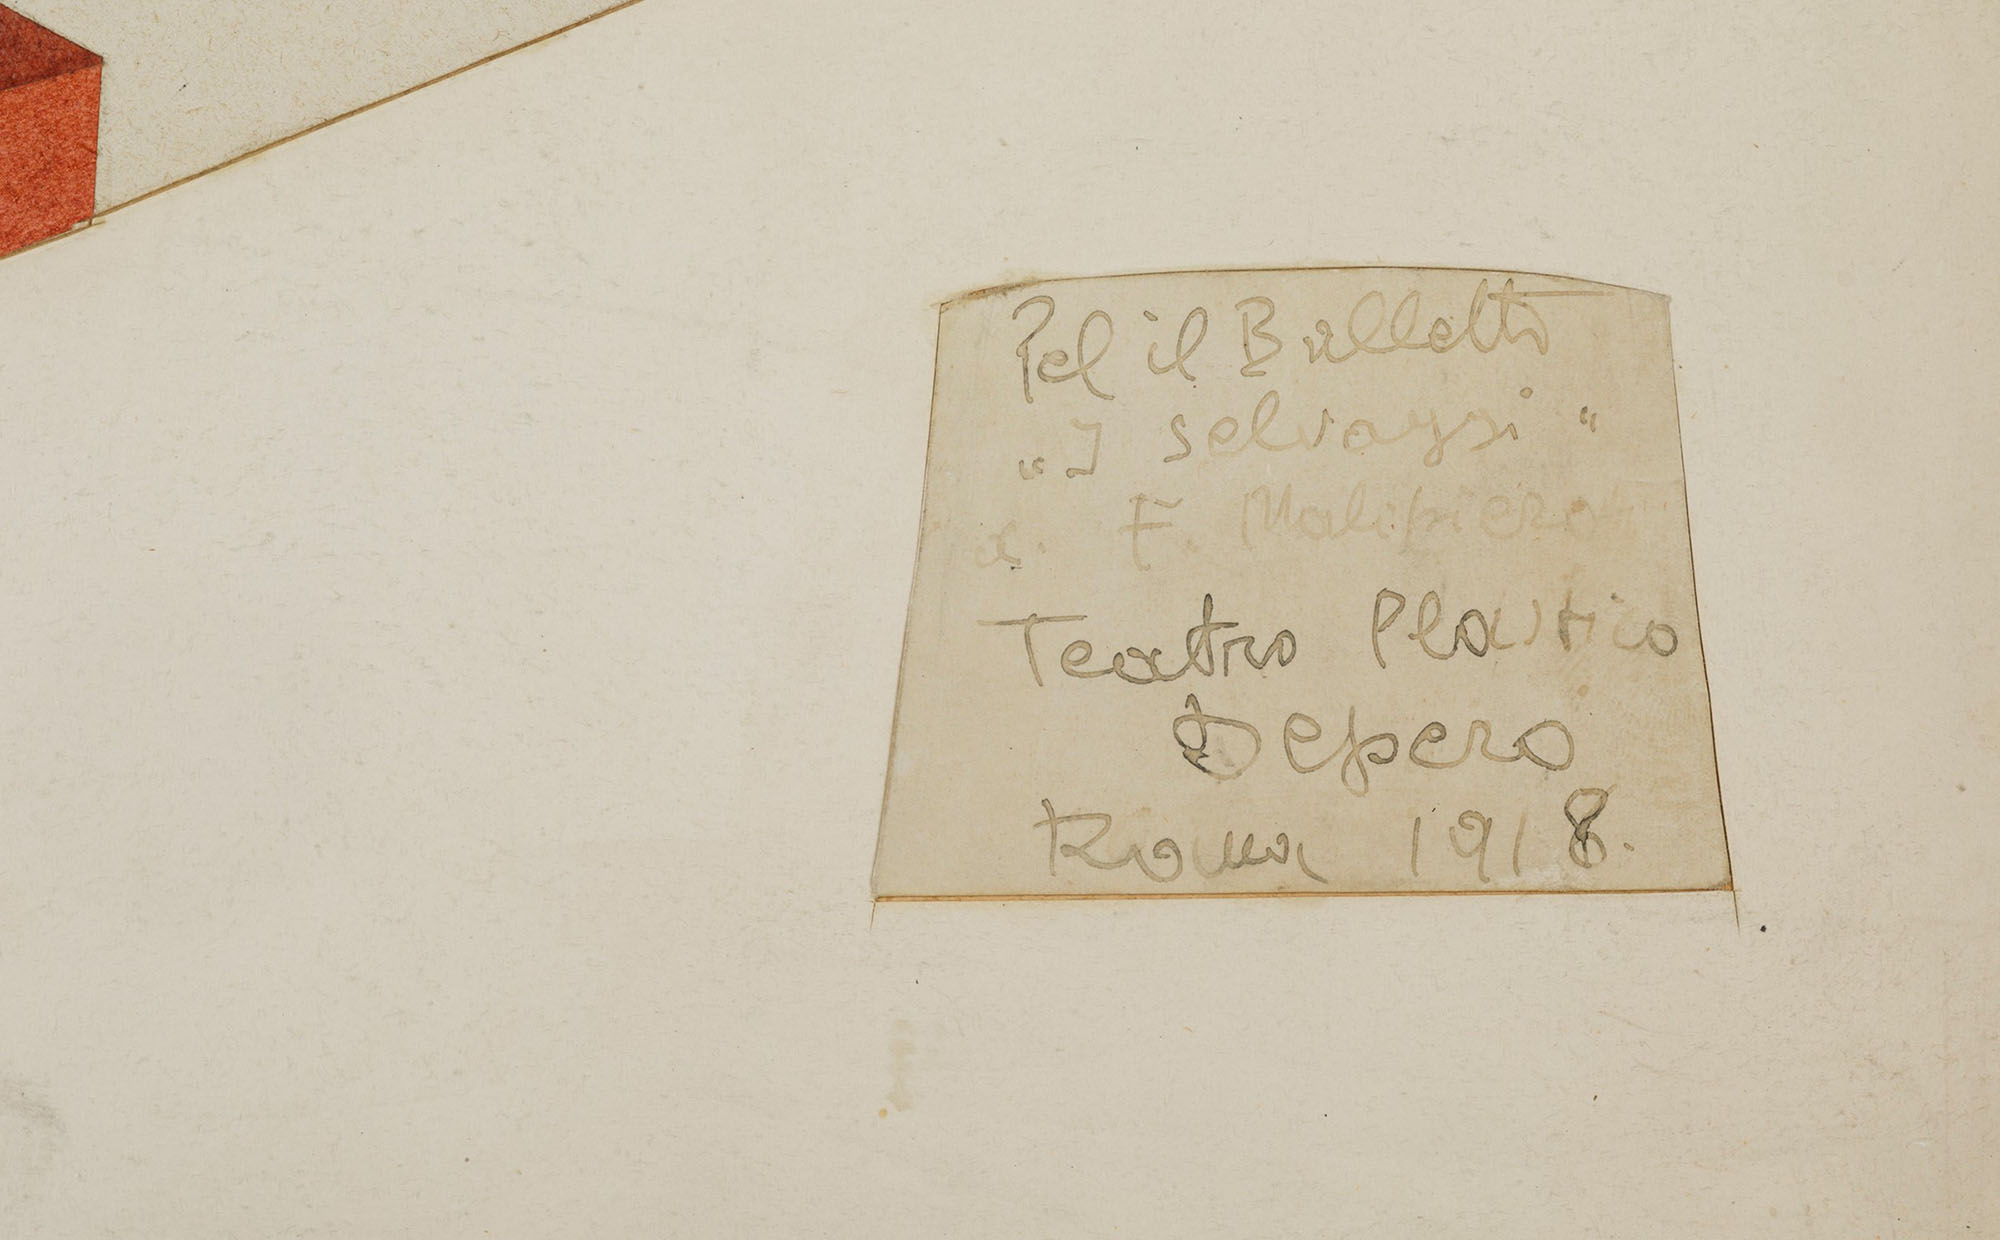 Pel il Balletto
„I selvaggi“
F. Malipiero
Teatro Plastico
Depero
Roma 1918.